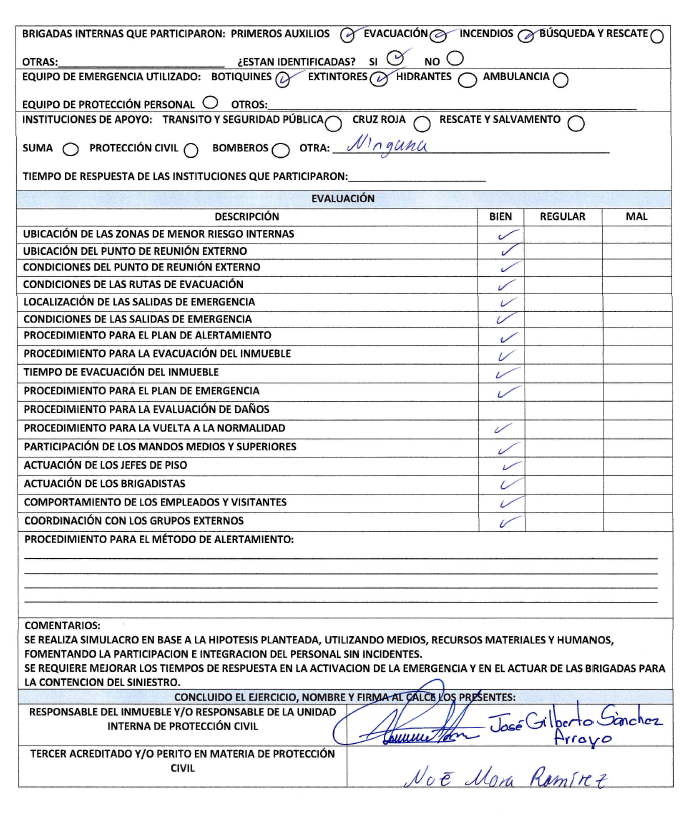 BRIGADAS INTERNAS QUE PARTICIPARON: PRIMEROS AUXILIOS ✓ EVACUACIÓN ✓ INCENDIOS ✓ BÚSQUEDA Y RESCATE
OTRAS: ¿ESTAN IDENTIFICADAS? SI ✓ NO
EQUIPO DE EMERGENCIA UTILIZADO: BOTIQUINES ✓ EXTINTORES ✓ HIDRANTES AMBULANCIA
EQUIPO DE PROTECCIÓN PERSONAL OTROS:
INSTITUCIONES DE APOYO: TRANSITO Y SEGURIDAD PÚBLICA CRUZ ROJA RESCATE Y SALVAMENTO
SUMA PROTECCIÓN CIVIL BOMBEROS OTRA: Ninguna
TIEMPO DE RESPUESTA DE LAS INSTITUCIONES QUE PARTICIPARON:
EVALUACIÓN
DESCRIPCIÓN BIEN REGULAR MAL
UBICACIÓN DE LAS ZONAS DE MENOR RIESGO INTERNAS ✓
UBICACIÓN DEL PUNTO DE REUNIÓN EXTERNO ✓
CONDICIONES DEL PUNTO DE REUNIÓN EXTERNO ✓
CONDICIONES DE LAS RUTAS DE EVACUACIÓN ✓
LOCALIZACIÓN DE LAS SALIDAS DE EMERGENCIA ✓
CONDICIONES DE LAS SALIDAS DE EMERGENCIA ✓
PROCEDIMIENTO PARA EL PLAN DE ALERTAMIENTO ✓
PROCEDIMIENTO PARA LA EVACUACIÓN DEL INMUEBLE ✓
TIEMPO DE EVACUACIÓN DEL INMUEBLE ✓
PROCEDIMIENTO PARA EL PLAN DE EMERGENCIA ✓
PROCEDIMIENTO PARA LA EVALUACIÓN DE DAÑOS
PROCEDIMIENTO PARA LA VUELTA A LA NORMALIDAD ✓
PARTICIPACIÓN DE LOS MANDOS MEDIOS Y SUPERIORES ✓
ACTUACIÓN DE LOS JEFES DE PISO ✓
ACTUACIÓN DE LOS BRIGADISTAS ✓
COMPORTAMIENTO DE LOS EMPLEADOS Y VISITANTES ✓
COORDINACIÓN CON LOS GRUPOS EXTERNOS ✓
PROCEDIMIENTO PARA EL MÉTODO DE ALERTAMIENTO:
COMENTARIOS:
SE REALIZA SIMULACRO EN BASE A LA HIPOTESIS PLANTEADA, UTILIZANDO MEDIOS, RECURSOS MATERIALES Y HUMANOS,
FOMENTANDO LA PARTICIPACION E INTEGRACION DEL PERSONAL SIN INCIDENTES.
SE REQUIERE MEJORAR LOS TIEMPOS DE RESPUESTA EN LA ACTIVACION DE LA EMERGENCIA Y EN EL ACTUAR DE LAS BRIGADAS PARA
LA CONTENCION DEL SINIESTRO.
CONCLUIDO EL EJERCICIO, NOMBRE Y FIRMA AL CALCE LOS PRESENTES:
RESPONSABLE DEL INMUEBLE Y/O RESPONSABLE DE LA UNIDAD
INTERNA DE PROTECCIÓN CIVIL
José Gilberto Sánchez
Arroyo
TERCER ACREDITADO Y/O PERITO EN MATERIA DE PROTECCIÓN
CIVIL
Noé Mora Ramírez